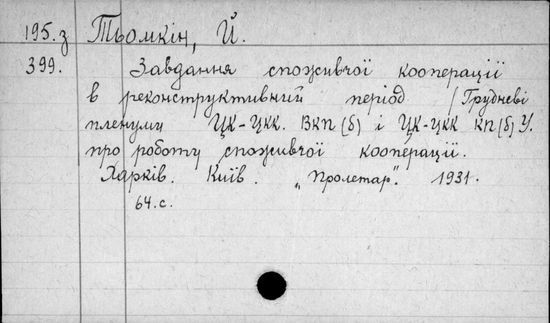 195.з Тьомкін, Й.
399. Завдання споживчої кооперації
в реконструктивний період /Грудневі
пленуми ЦК-ЦКК. ВКП(б) і ЦК-ЦКК КП(б)У.
про роботу споживчої кооперації.
Харків. Київ. „Пролетар". 1931.
64.с.